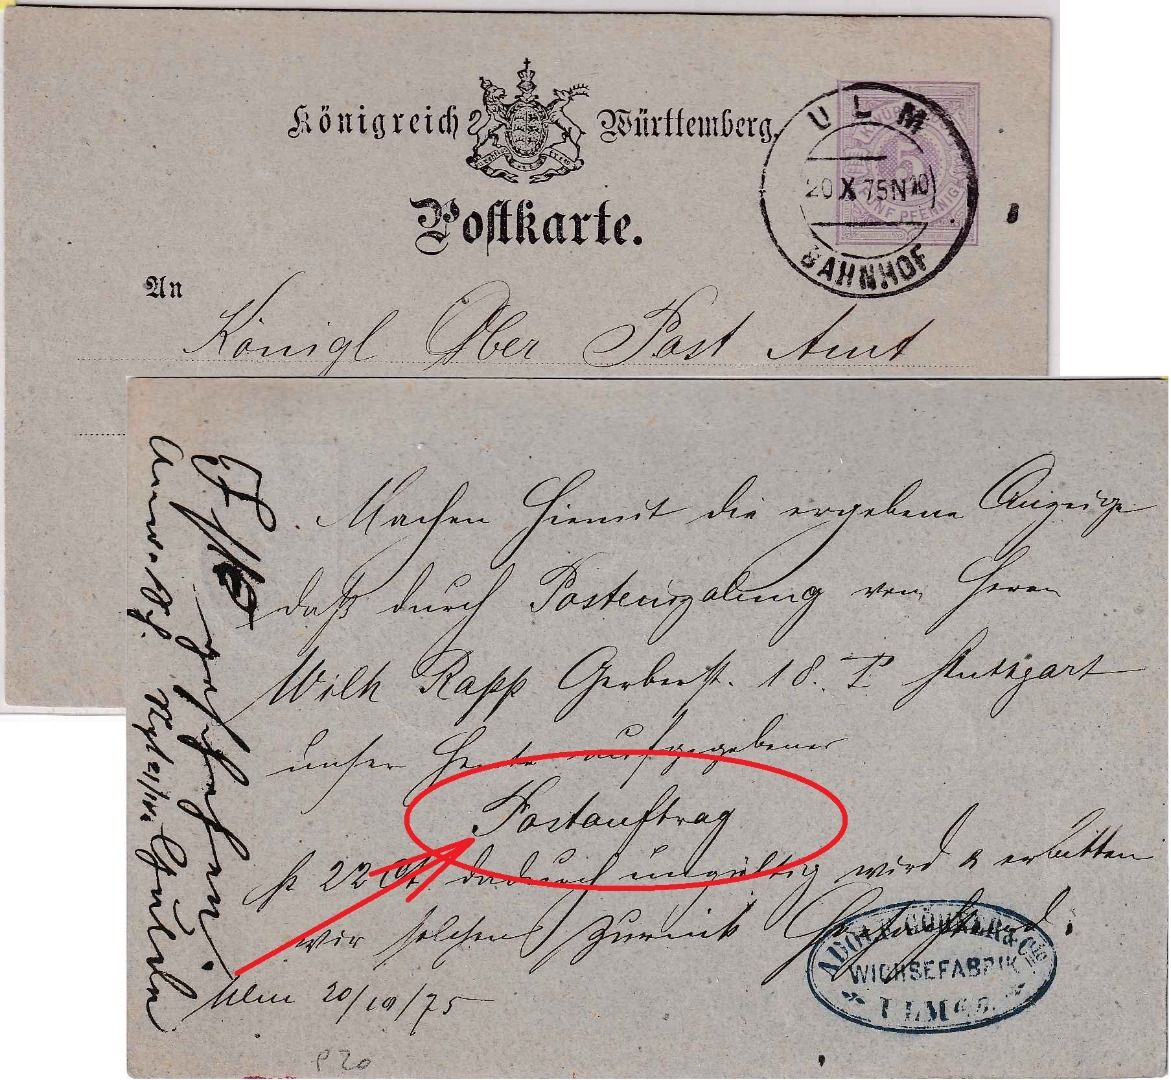 Königreich Württemberg.
Postkarte.
ULM
20 X 75 N 10
BAHNHOF
FÜNF PFENNIG
5
An
Königl Ober Post Amt
Machen hiemit die ergebene Anzeige
daß durch Posteinzalung von Herrn
Wilh Rapp Gerberst. 18. I Stuttgart
unser heute aufgegebener
Postauftrag
22 dadurch ungültig wird & erbitten
wir solchen zurück
Ulm 20/10/75
ADOLF & Cie
WICHSEFABRIK
ULM a/D.
gesehen
P 20